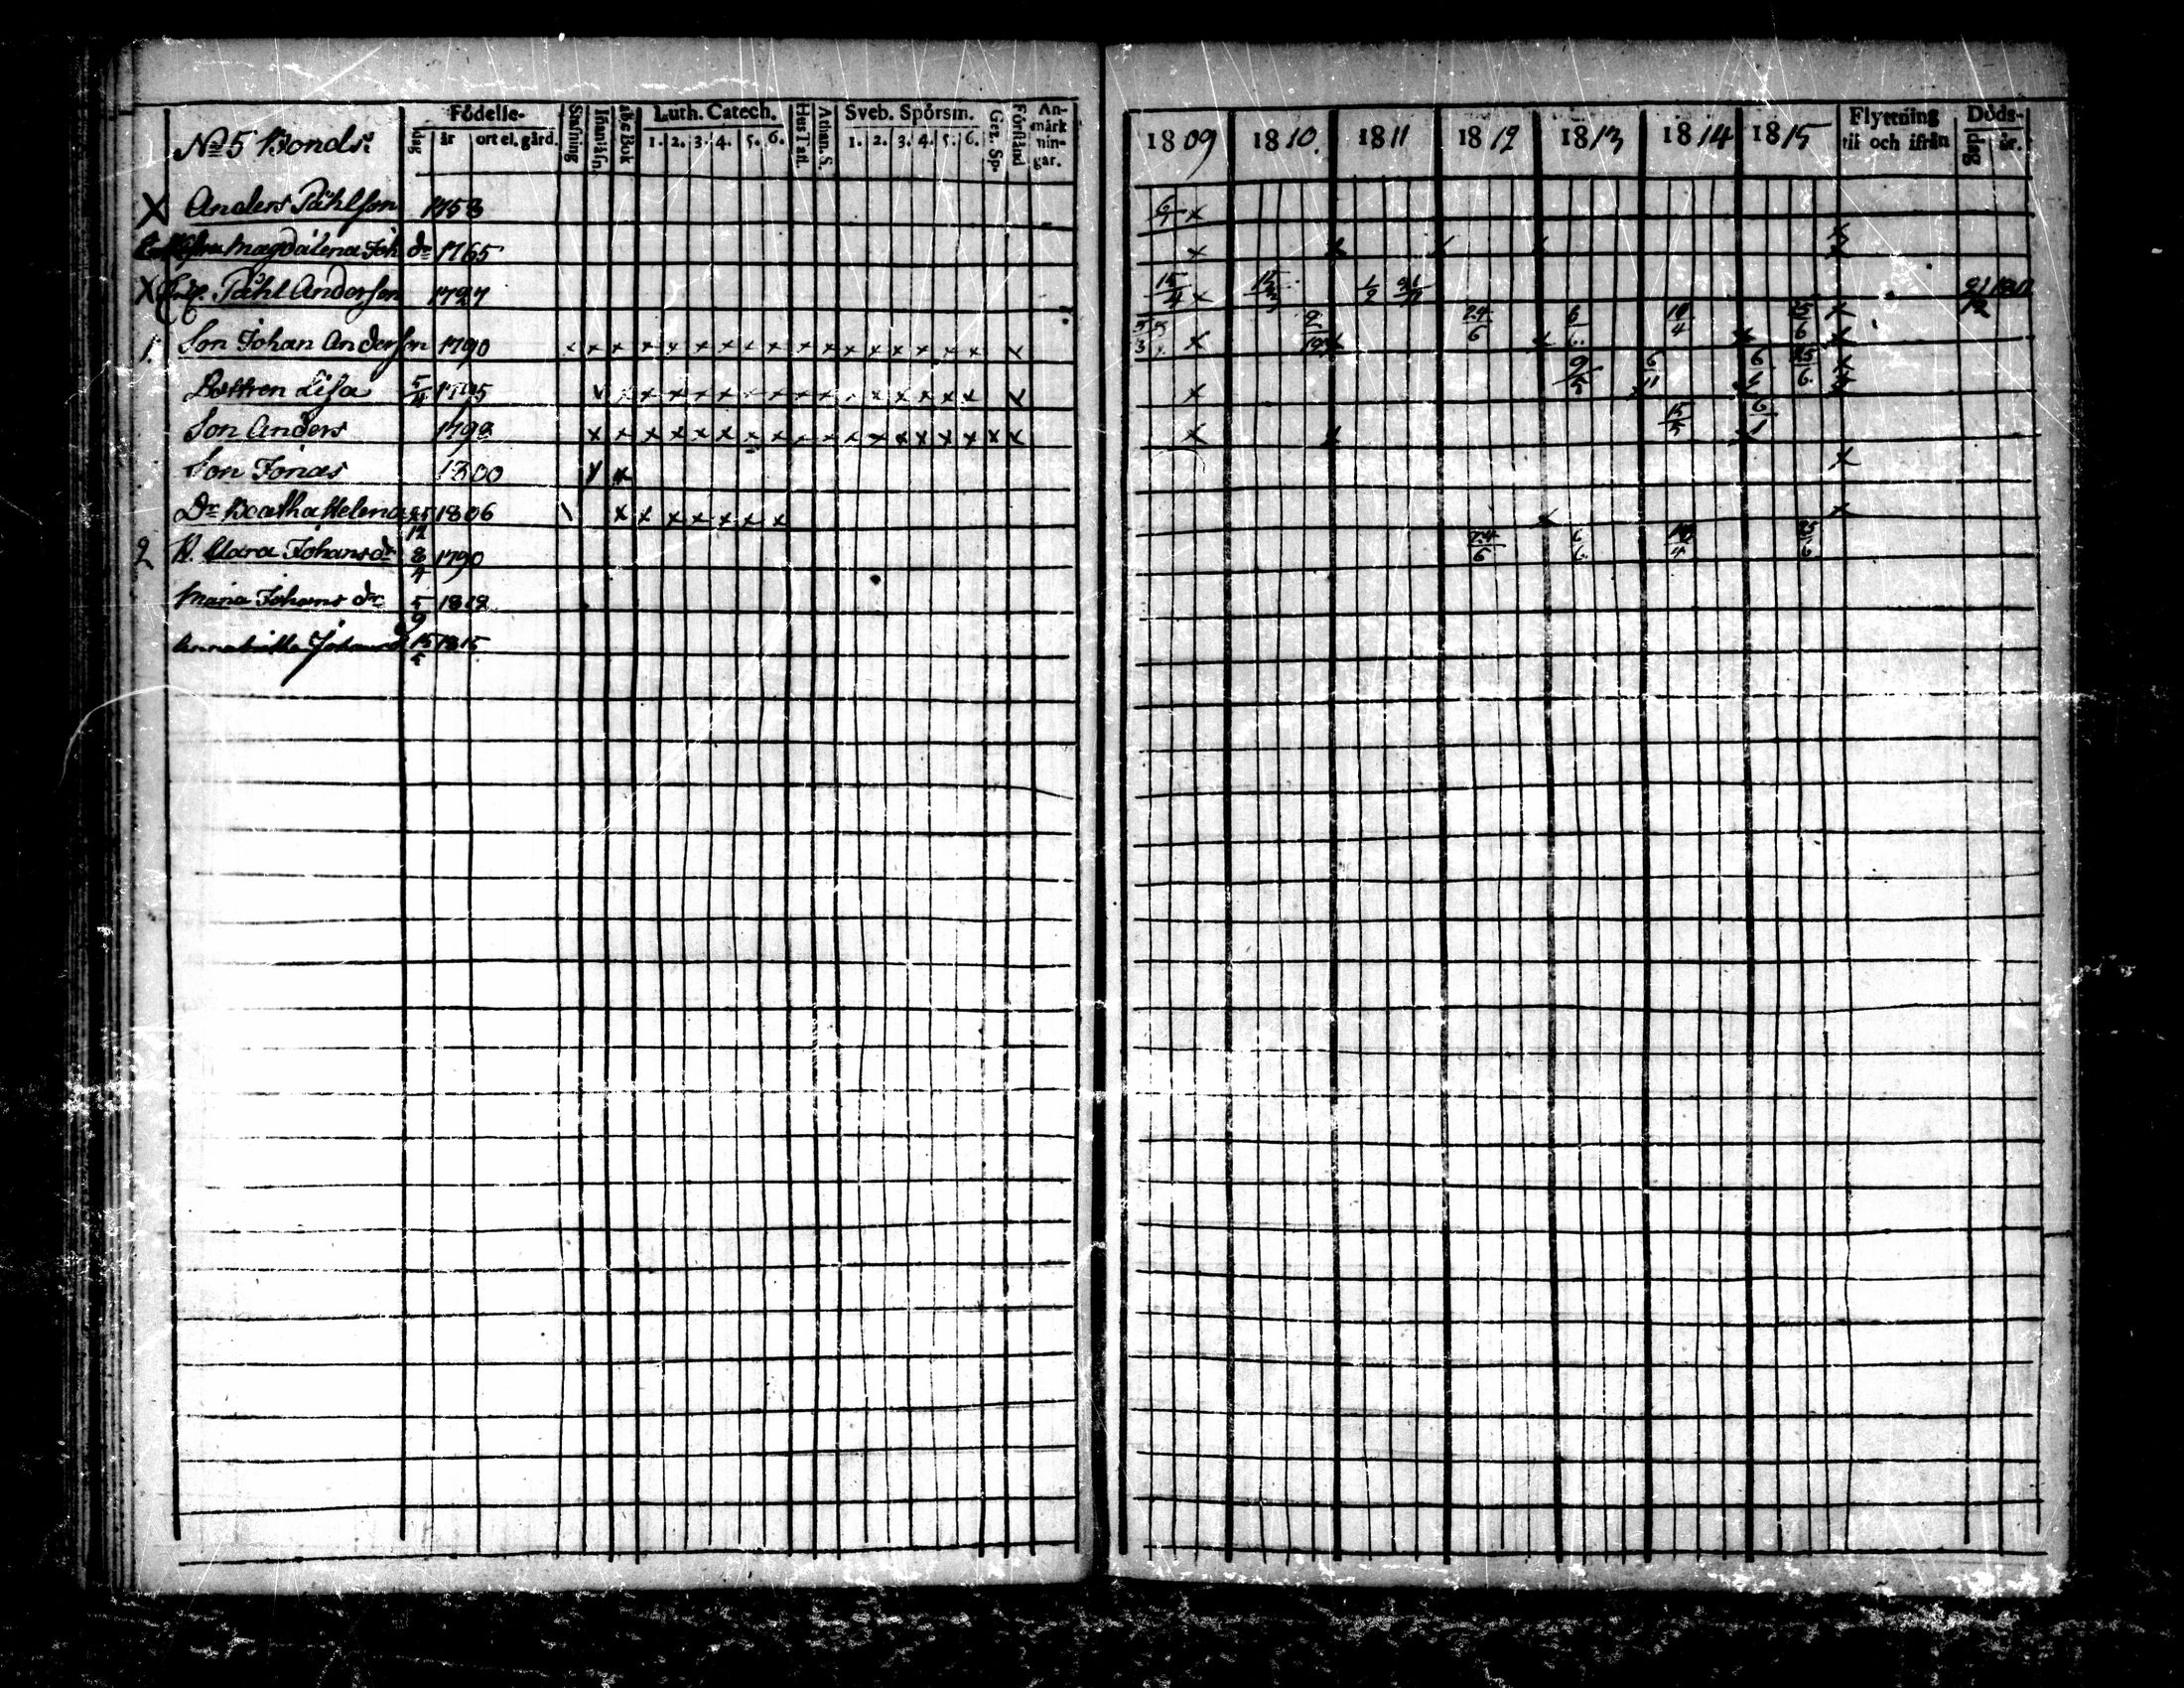 Födelse-
dag
år
ort el. gård.
Stafning
Innanläsn.
abc Bok
Luth. Catech.
1. 2. 3. 4. 5. 6.
Hus Tafl.
Athan. S.
Sveb. Spörsm.
1. 2. 3. 4. 5. 6.
Gez. Sp.
Förstånd
An-
märk
nin-
gar.
No 5 Bonds.
Anders Påhlson 1758
Magdalena Joh dr 1765
Påhl Anderson 1797
1. Son Johan Anderson 1790
Dottren Lisa 5/4 1795
Son Anders 1798
Son Jonas 1800
Dr Beatha Helena 25/12 1806
2 H. Clara Johansdr 8/4 1790
Maria Johans dr 5/9 1812
Annabritta Johansd 15/5 1815
1809 1810. 1811 1812 1813 1814 1815
Flyttning
til och ifrån
Döds-
dag
år.
6/7 x
15/4 x 15/3 1/2 21/11 21/12
24/6 6/6 10/4 25/6
9/5 6/11 6/1 25/6
15/5 6/1
24/6 6/6 10/4 25/6